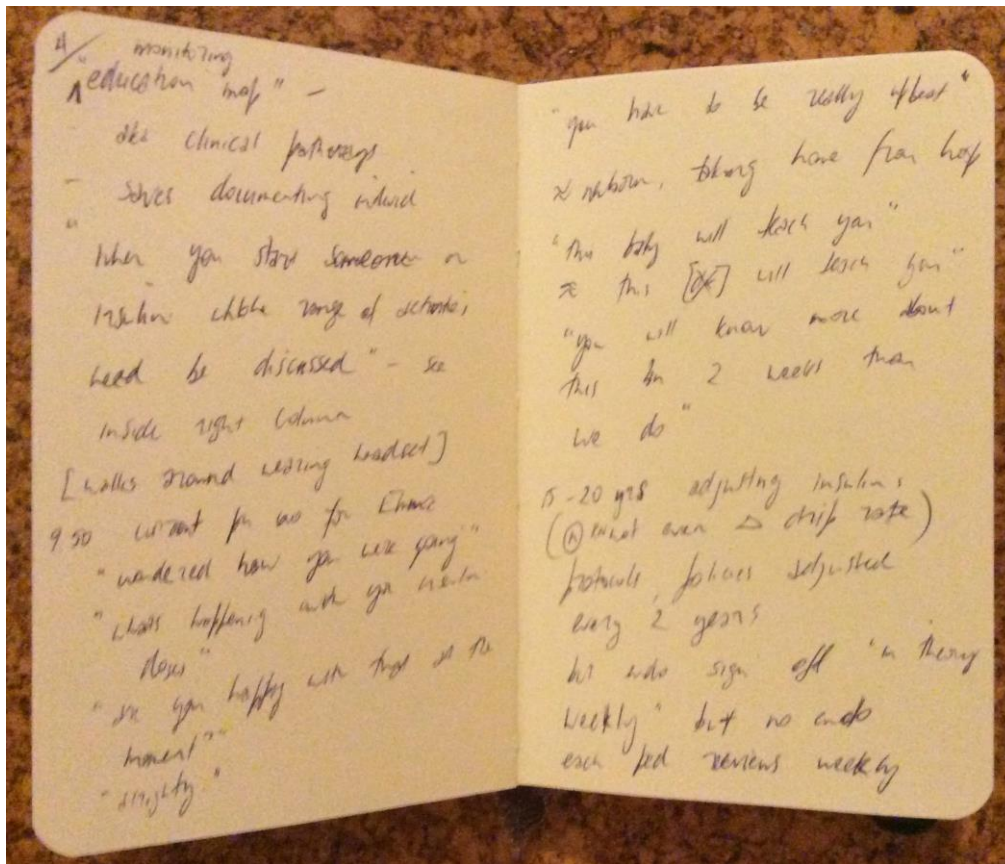 4/
monitoring
"education map" –
aka clinical pathways
– saves documenting individ
"When you start someone on
insulin whole range of activities
need be discussed" – see
inside right column
[walks around wearing headset]
9.50 for Emma
"wondered how you were going"
"whats happening with your insulin
doses"
"are you happy with that at the
moment"
"alrighty"
"you have to be really upbeat"
≈ newborn, taking home from hosp
"this baby will teach you"
≈ this [ ] will teach you"
"you will know more about
this in 2 weeks than
we do"
15-20 yrs adjusting insulins
( cannot even Δ drip rate)
protocols, policies adjusted
every 2 years
but endo sign off "in theory
weekly" but no endo
each ped reviews weekly